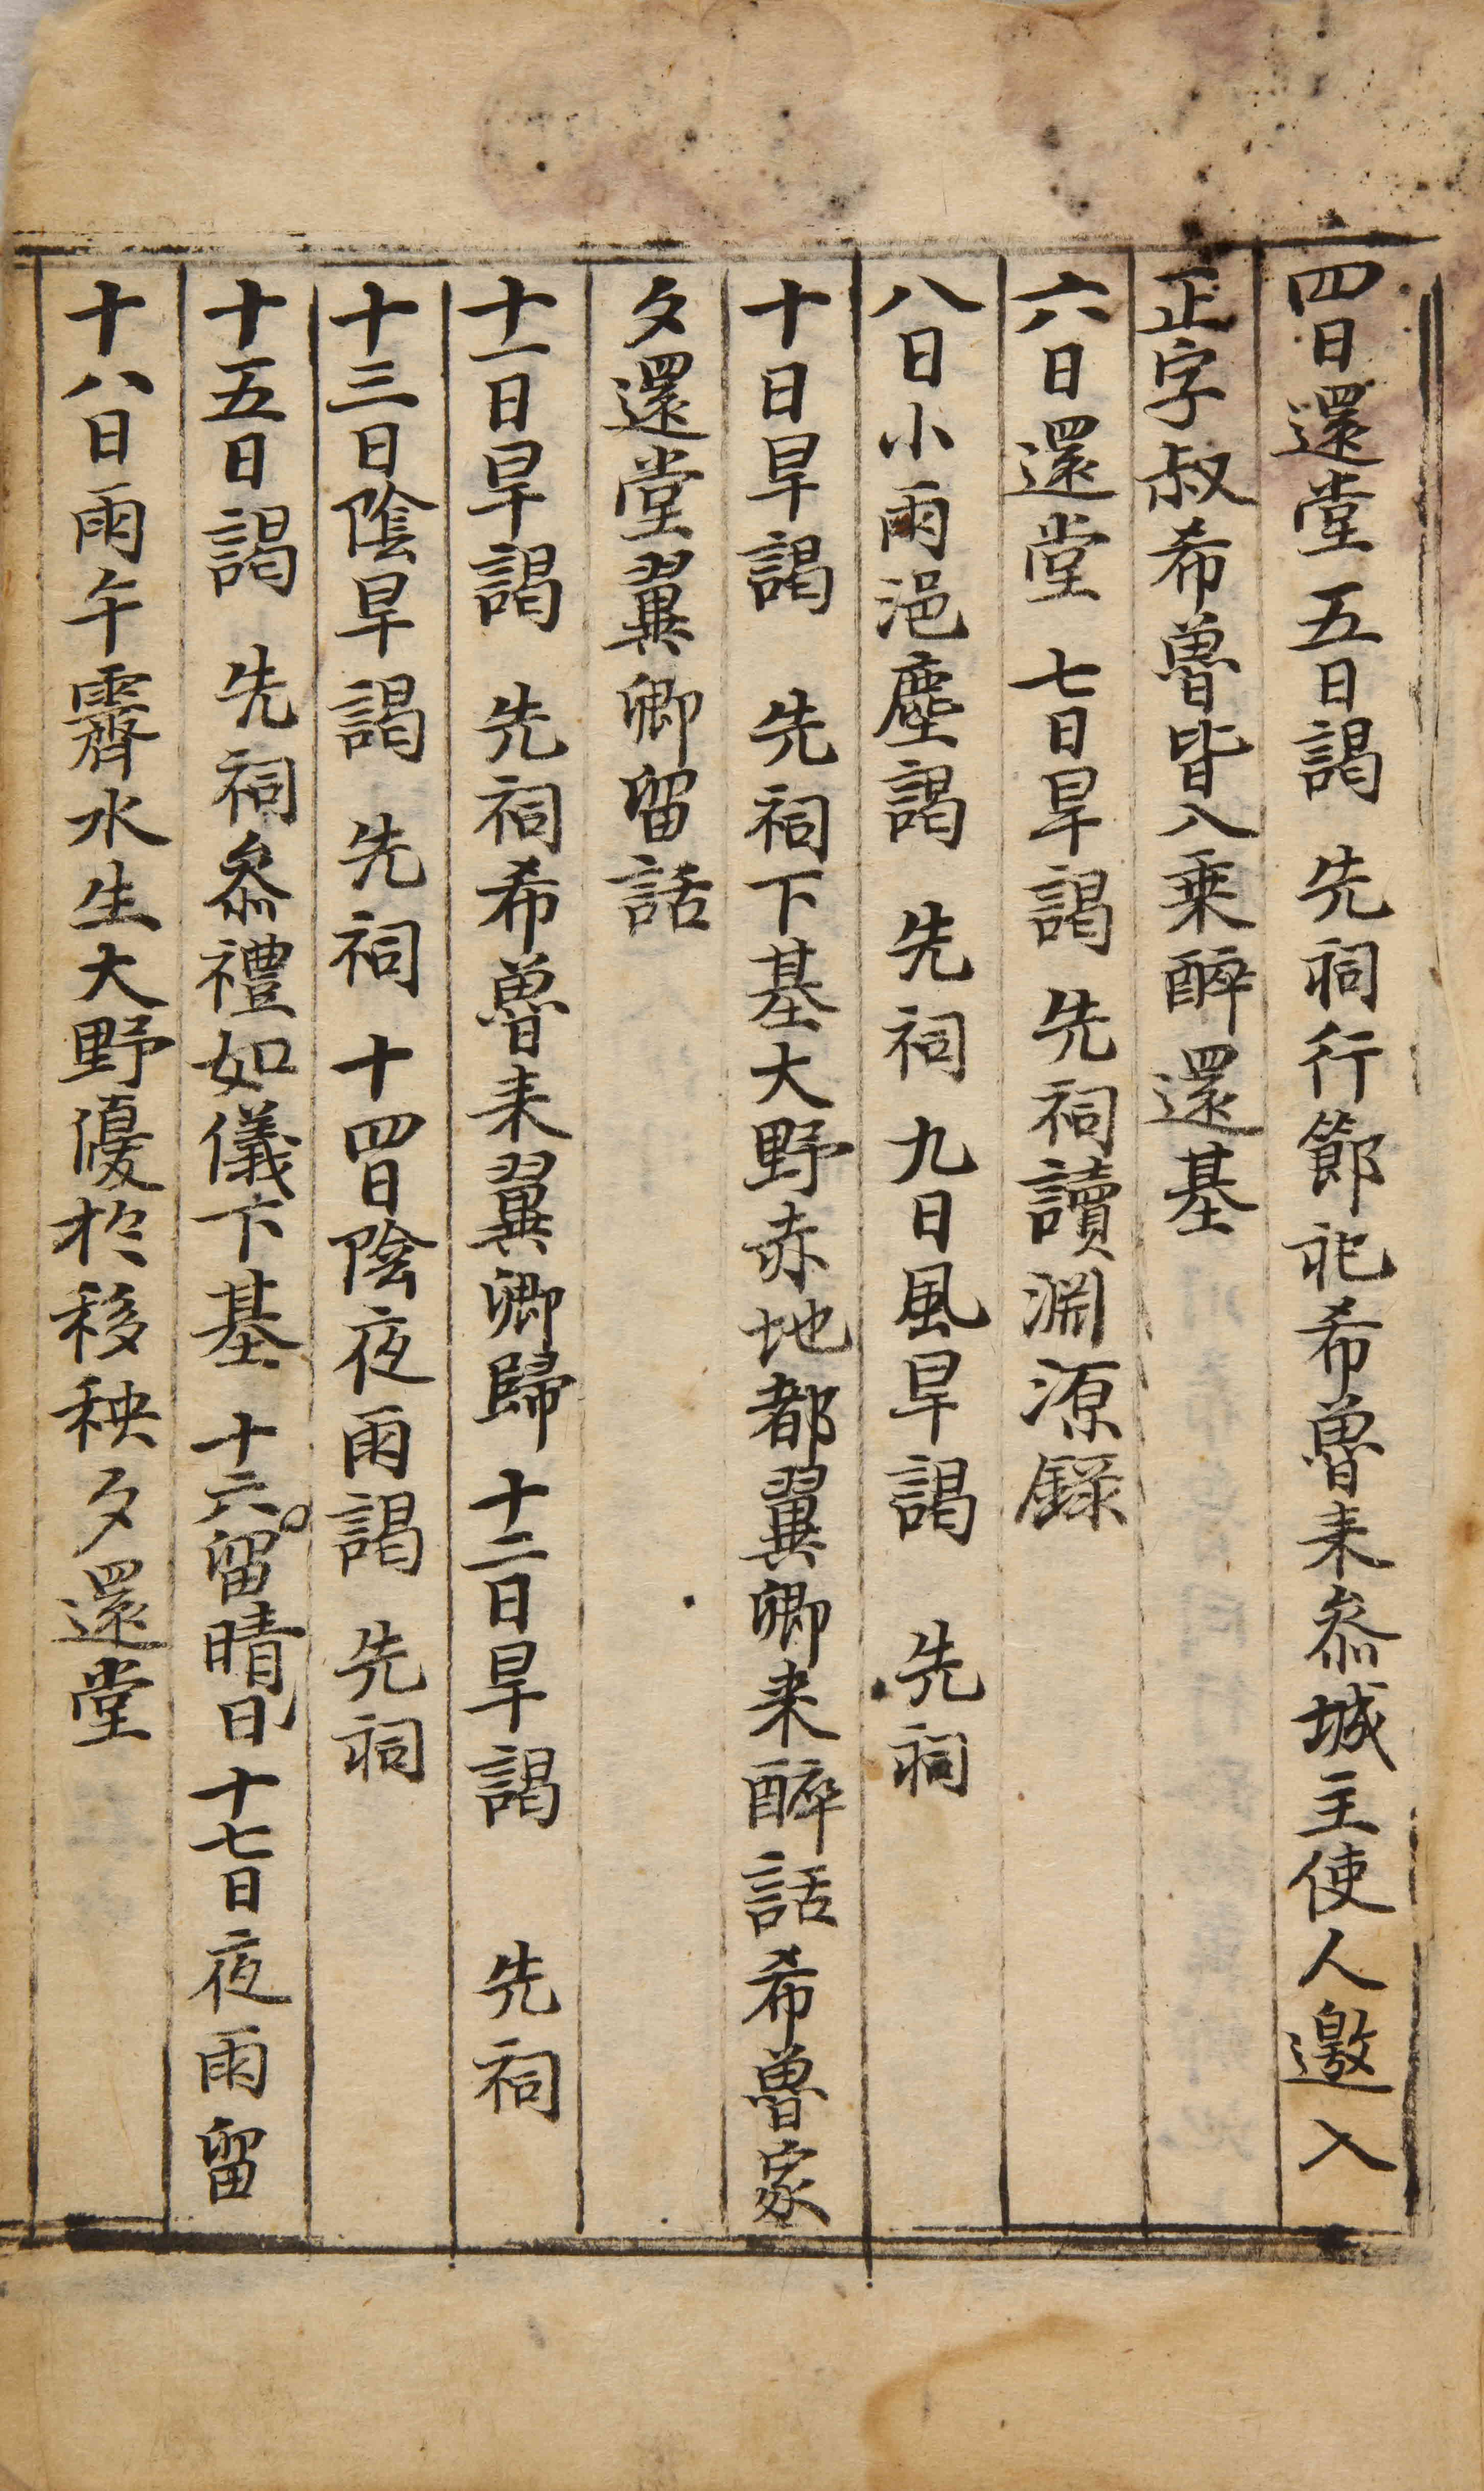 四日還堂 五日謁 先祠行節祀希魯来叅城主使人邀入
正字叔希魯皆入乗醉還基
六日還堂 七日旱謁 先祠讀淵源録
八日小雨浥塵謁 先祠 九日風旱謁 先祠
十日旱謁 先祠下基大野赤地都翼卿来醉話希魯家
夕還堂翼卿留話
十一日旱謁 先祠希魯来翼卿歸 十二日旱謁 先祠
十三日陰旱謁 先祠 十四日陰夜雨謁 先祠
十五日謁 先祠叅禮如儀下基 十六留晴日 十七日夜雨留
十八日雨午霽水生大野優於移秧夕還堂